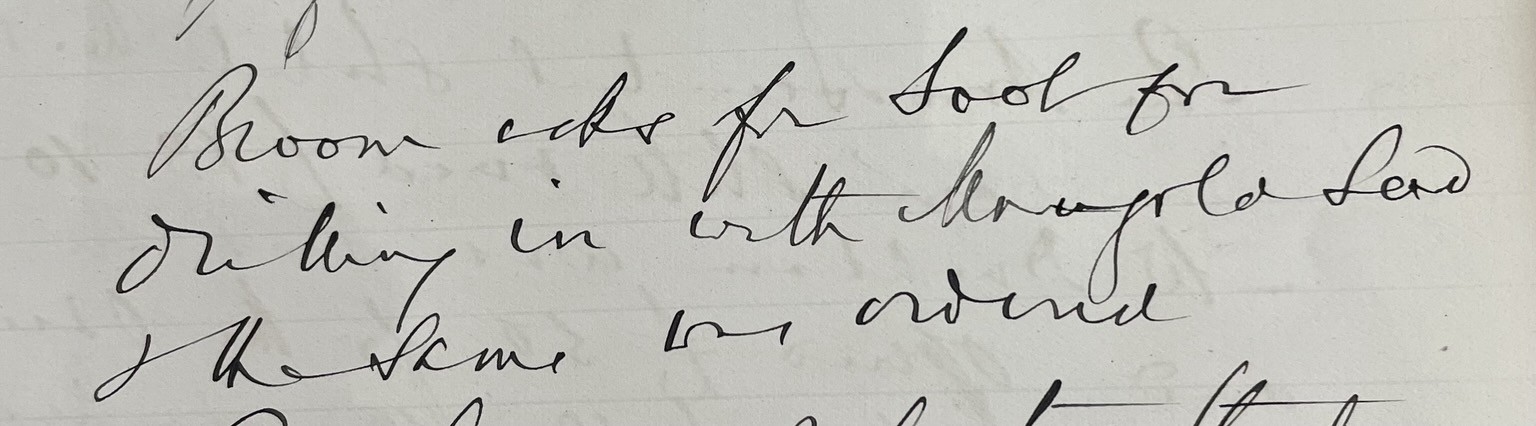 Broom asks for Soot for
drilling in with Mangold Seed
& the same was ordered